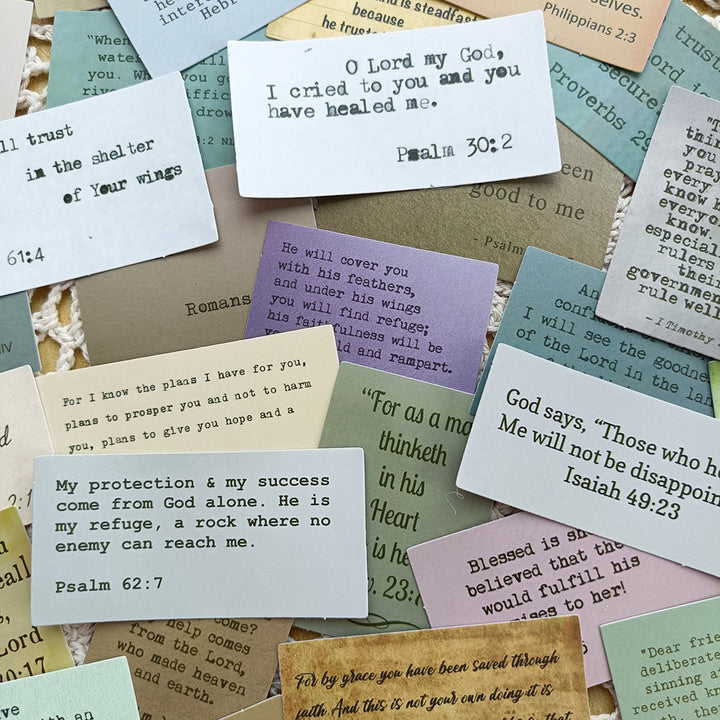 he
inter
Hebr
is steadfast
because
he trusts
selves.
Philippians 2:3
"When
water
you. W
you ge
rive
iffic
drow
3:2 NL
O Lord my God,
I cried to you and you
have healed me.
Psalm 30:2
trust
ord is
secure
Proverbs 29
ll trust
in the shelter
of Your wings
61:4
een
good to me
- Psalm
"T
thin
you
pray
every
know
everyo
know.
especial
rulers
thei
governmen
rule well
- I Timothy
Romans
He will cover you
with his feathers,
and under his wings
you will find refuge;
his faithfulness will be
ld and rampart.
An
conf
I will see the goodne
of the Lord in the lan
NIV
For I know the plans I have for you,
plans to prosper you and not to harm
you, plans to give you hope and a
d
2:1
"For as a ma
thinketh
in his
Heart
is he
. 23:7
God says, "Those who ho
Me will not be disappoin
Isaiah 49:23
My protection & my success
come from God alone. He is
my refuge, a rock where no
enemy can reach me.
Psalm 62:7
Blessed is sh
believed that the
would fulfill his
mises to her!
n
eall
s,
Lord
20:17
come?
help comes
from the Lord,
who made heaven
and earth.
For by grace you have been saved through
faith. And this is not your own doing; it is
"Dear frie
deliberate
sinning a
received kn
ve
th an